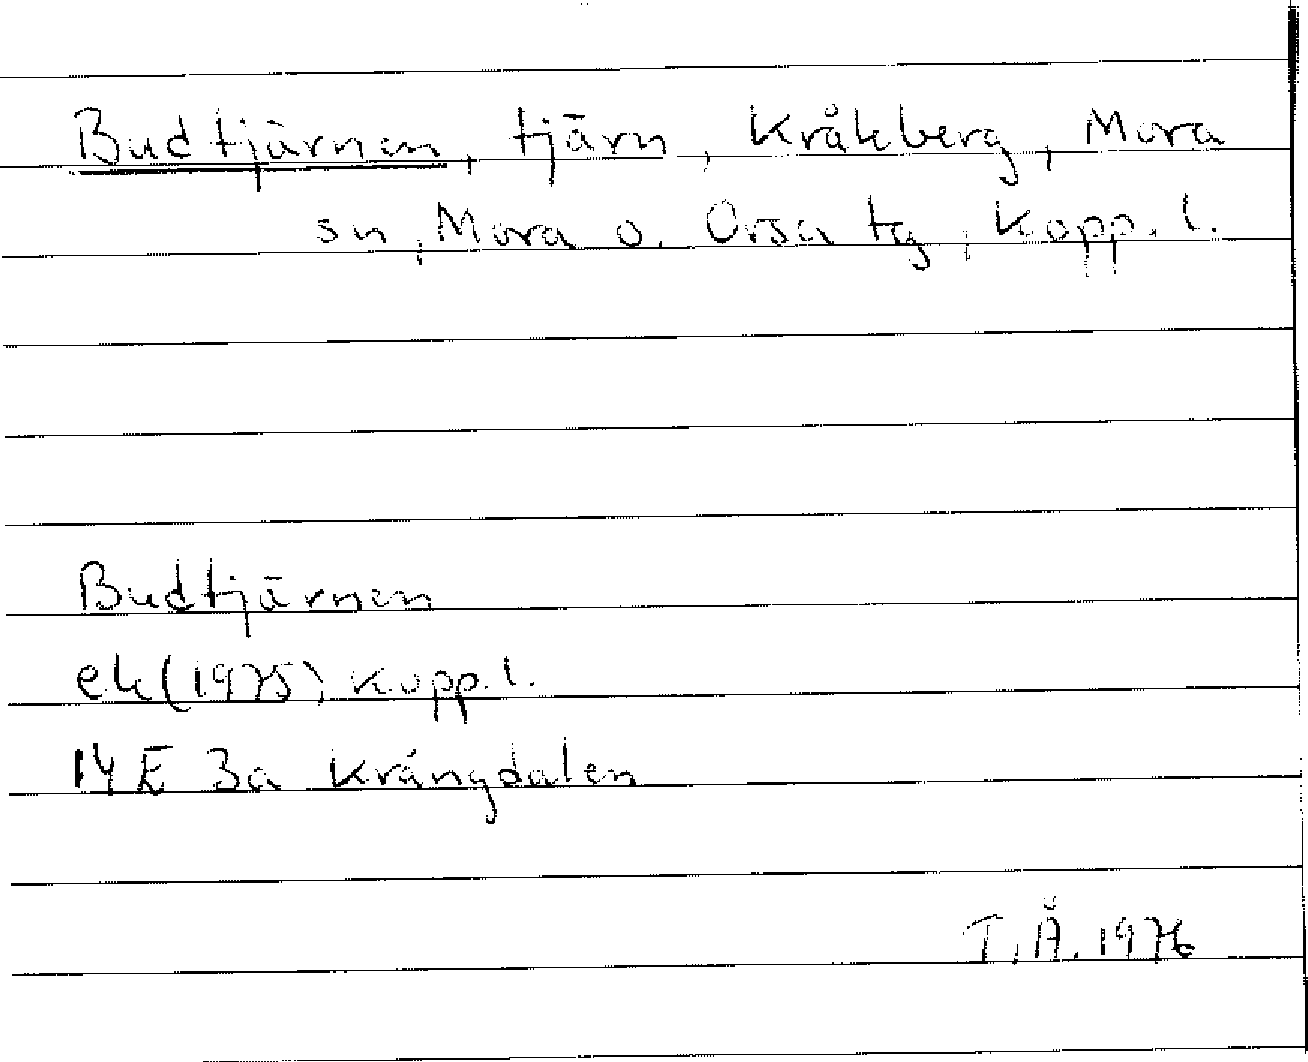 Budtjärnen, tjärn, Kråkberg, Mora
sn, Mora o. Orsa tg, Kopp. l.
Budtjärnen
ek (1975), Kopp. l.
14 E 3a Krångdalen
T. Å. 1976